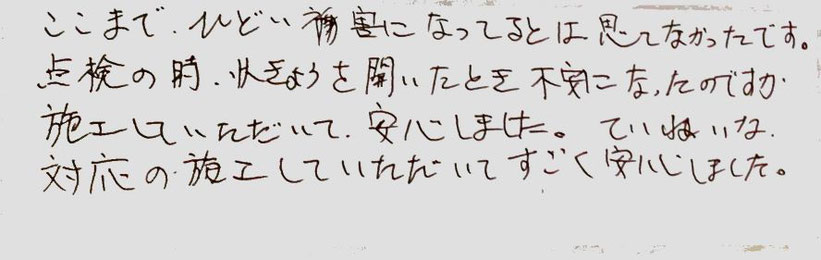 ここまで、ひどい被害になってるとは思ってなかったです。
点検の時、状きょうを聞いたとき不安になったのですが
施工していただいて、安心しました。ていねいな、
対応の施工していただいてすごく安心しました。